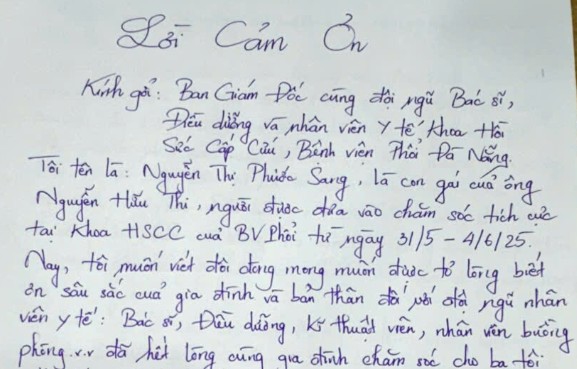 Lời Cảm Ơn
Kính gởi: Ban Giám Đốc cùng đội ngũ Bác sĩ,
Điều dưỡng và nhân viên Y tế Khoa Hồi
Sức Cấp Cứu, Bệnh viện Phổi Đà Nẵng.
Tôi tên là: Nguyễn Thị Phước Sang, là con gái cuả ông
Nguyễn Hữu Thi, người được đưa vào chăm sóc tích cực
tại Khoa HSCC cuả BV Phổi từ ngày 31/5 - 4/6/25.
Nay, tôi muốn viết đôi dòng mong muốn được tỏ lòng biết
ơn sâu sắc cuả gia đình và bản thân đối với đội ngũ nhân
viên y tế: Bác sĩ, Điều dưỡng, kĩ thuật viên, nhân viên buồng
phòng.v.v đã hết lòng cùng gia đình chăm sóc cho ba tôi